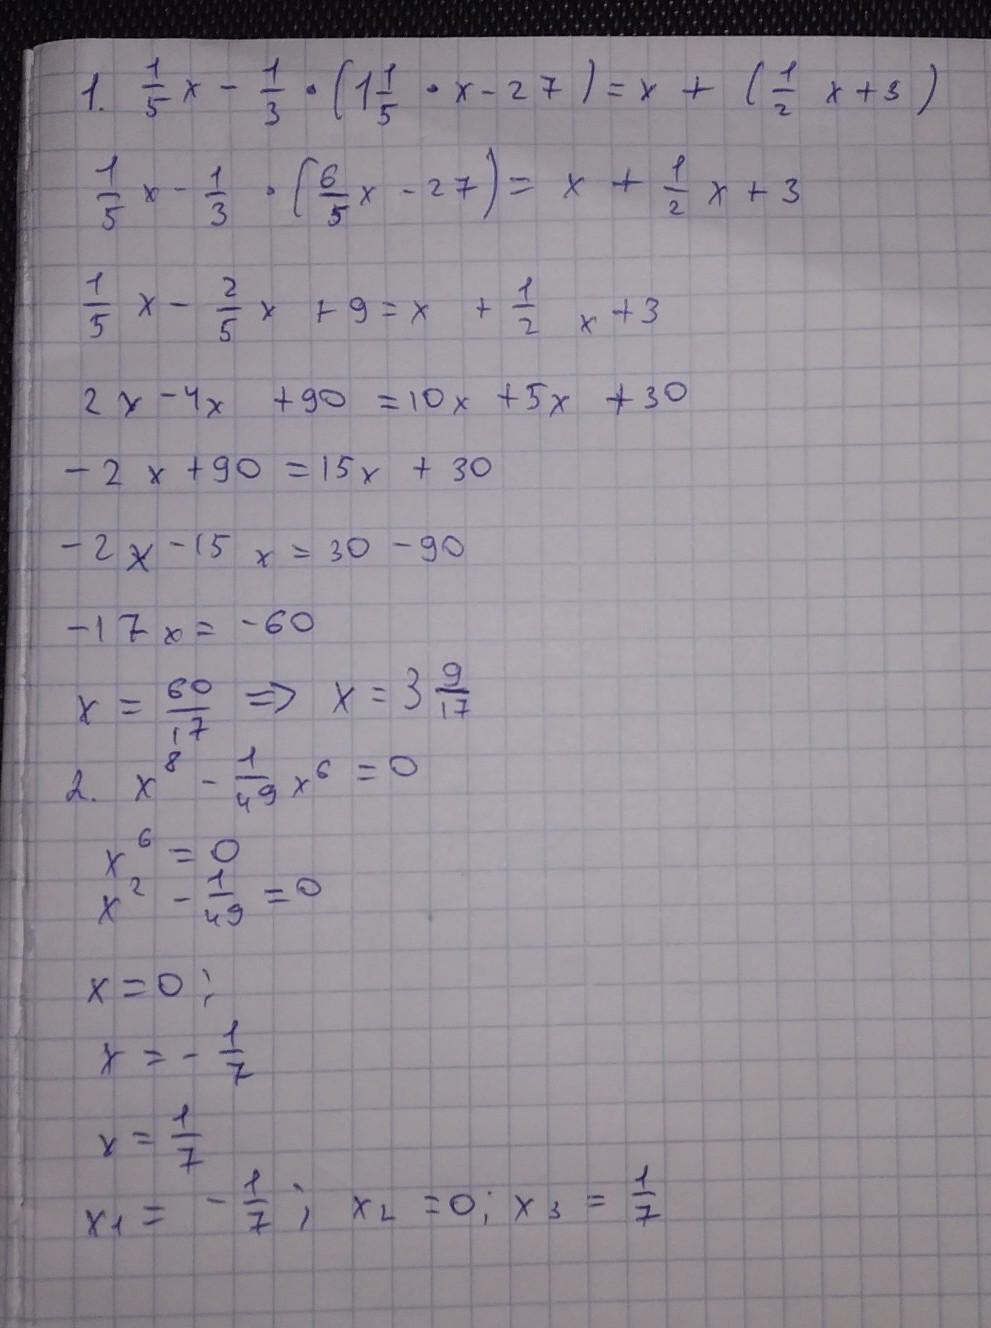 1. 1/5 x - 1/3 • (1 1/5 • x - 27) = x + (1/2 x + 3)
1/5 x - 1/3 • (6/5 x - 27) = x + 1/2 x + 3
1/5 x - 2/5 x + 9 = x + 1/2 x + 3
2x - 4x + 90 = 10x + 5x + 30
-2x + 90 = 15x + 30
-2x - 15x = 30 - 90
-17x = -60
x = 60/17 => x = 3 9/17
2. x⁸ - 1/49 x⁶ = 0
x⁶ = 0
x² - 1/49 = 0
x = 0;
x = - 1/7
x = 1/7
x₁ = - 1/7; x₂ = 0; x₃ = 1/7